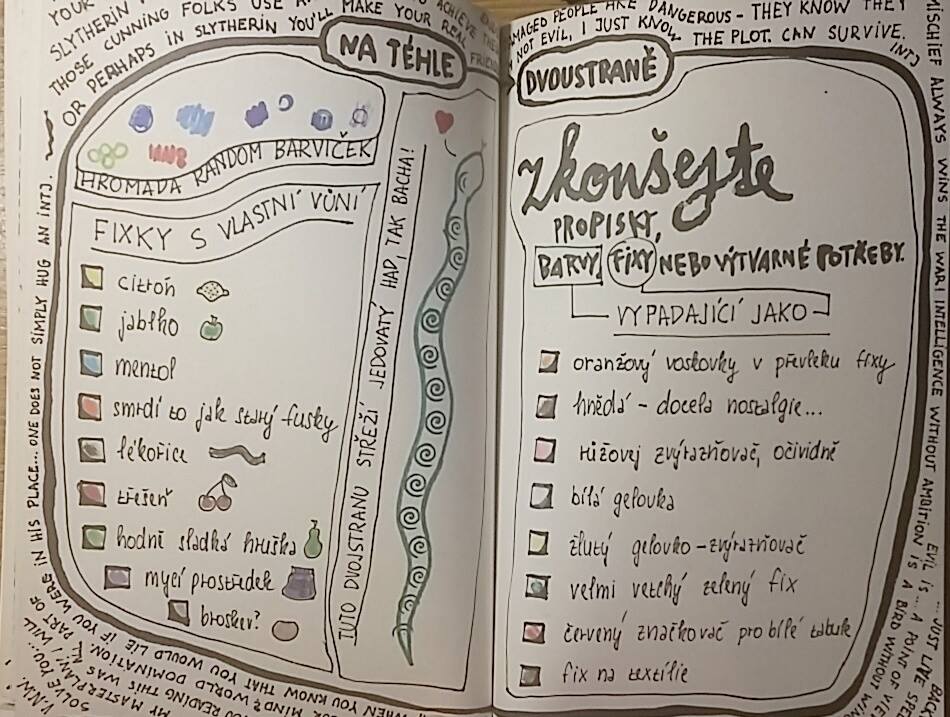 NA TÉHLE
DVOUSTRANĚ
HROMADA RANDOM BARVIČEK
FIXKY S VLASTNÍ VŮNÍ
citrón
jablko
mentol
smrdí to jak starý fusky
lékořice
třešeň
hodně sladká hruška
mycí prostředek
broskev?
TUTO DVOJSTRANU STŘEŽÍ JEDOVATÝ HAD, TAK BACHA!
zkoušejte
PROPISKY,
BARVY, FIXY NEBO VÝTVARNÉ POTŘEBY.
VYPADAJÍCÍ JAKO
oranžový voskovky v převleku fixy
hnědá - docela nostalgie...
růžovej zvýrazňovač, očividně
bílá gelovka
žlutý gelovko-zvýrazňovač
velmi vetchý zelený fix
červený značkovač pro bílé tabule
fix na textílie
OR PERHAPS IN SLYTHERIN YOU'LL MAKE YOUR REAL
THOSE CUNNING FOLKS USE
TO ACHIEVE
SLYTHERIN
YOUR
DAMAGED PEOPLE ARE DANGEROUS - THEY KNOW THEY
CAN SURVIVE.
NOT EVIL, I JUST KNOW THE PLOT.
INTJ
MISCHIEF ALWAYS WINS THE WAR! INTELLIGENCE WITHOUT AMBITION IS A BIRD WITHOUT
EVIL IS ... A POINT OF
JUST LIVE
IN HIS PLACE... ONE DOES NOT SIMPLY HUG AN INTJ.
PART OF
IF YOU WERE
MY MASTERPLAN; I WILL
READING THIS WAS
SOLVE YOU...
MIND? WORLD DOMINATION.
WHEN YOU KNOW THAT YOU WOULD LIE